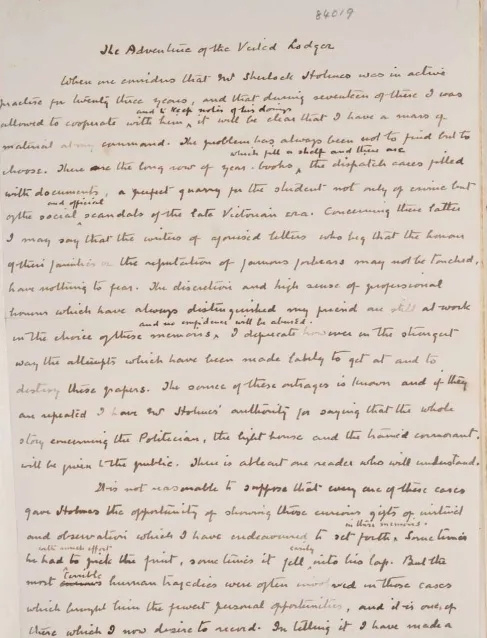 84019
The Adventure of the Veiled Lodger
When one considers that Mr Sherlock Holmes was in active
practice for twenty three years, and that during seventeen of these I was
and to keep notes of his doings
allowed to cooperate with him, it will be clear that I have a mass of
material at my command. The problem has always been not to find but to
which fill a shelf and there are
choose. There are the long row of year-books, the dispatch cases filled
with documents, a perfect quarry for the student not only of crime but
and official
of the social scandals of the late Victorian era. Concerning these latter
I may say that the writers of agonised letters who beg that the honour
of their families or the reputation of famous forbears may not be touched,
have nothing to fear. The discretion and high sense of professional
honour which have always distinguished my friend are still at work
in the choice of these memoirs,
and no confidence will be abused.
I deprecate however in the strongest
way the attempts which have been made lately to get at and to
destroy these papers. The source of these outrages is known and if they
are repeated I have Mr Holmes' authority for saying that the whole
story concerning the Politician, the light house and the trained cormorant
will be given to the public. There is at least one reader who will understand.
It is not reasonable to suppose that every one of these cases
gave Holmes the opportunity of showing those curious gifts of instinct
in these memoirs.
and observation which I have endeavoured to set forth. Sometimes
with much effort
easily
he had to pick the fruit, sometimes it fell into his lap. But the
terrible
most human tragedies were often involved in those cases
which brought him the fewest personal opportunities, and it is one of
these which I now desire to record. In telling it I have made a